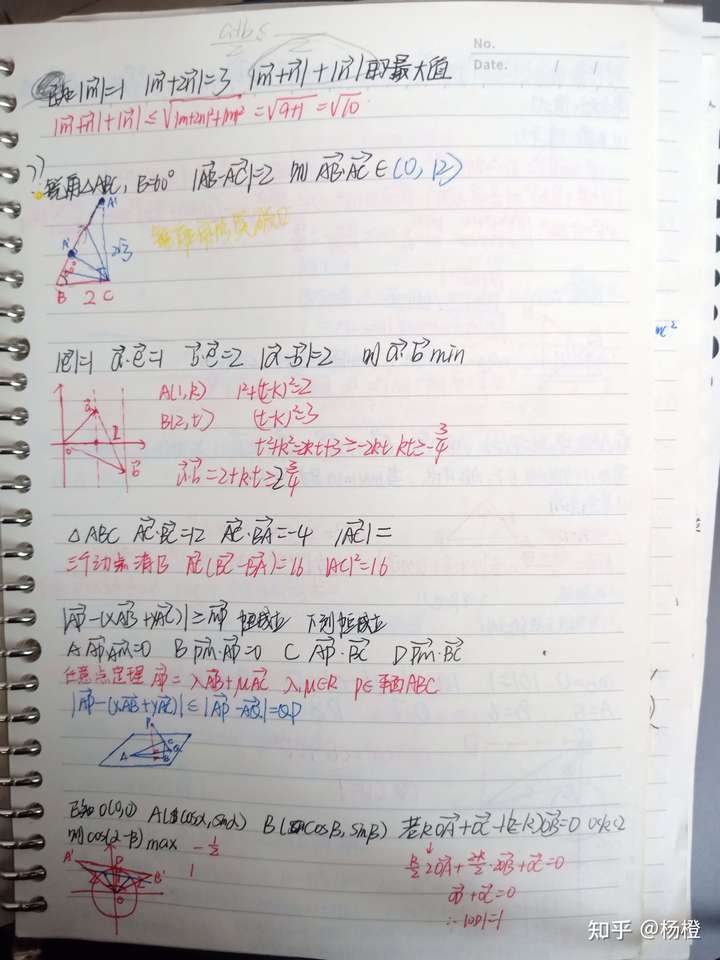 No.
Date.
已知|m|=1 |m+2n|=3 |m+n|+|n|的最大值
|m+n|+|n| ≤ √|m+2n|²+|m|² = √9+1 = √10
锐角△ABC, B=60° |AB-AC|=2 则 AB·AC ∈ (0, 12)
A'
A'
2√3
60°
B 2 C
|e|=1 a·e=1 b·e=2 |a-b|=2 则a·b min
A(1,k) 1²+(t-k)²=2
B(2,t) (t-k)²=3
t²+k²=2kt+3≥-2kt kt≥-3/4
a·b=2+k·t≥2 3/4
△ABC AC·BC=12 AC·BA=-4 |AC|=
三个动点消B AC(BC-BA)=16 |AC|²=16
|AP-(xAB+yAC)|≥MP 恒成立 下列恒成立
A AP·AM=0 B PM·AP=0 C AP·BC D PM·BC
任意点定理 AP=λAB+μAC λ,μ∈R P∈平面ABC
|AP-(xAB+yAC)|≤|AP-AQ|=QP
已知 O(0,0) A(cosα,sinα) B(cosβ,sinβ) 若kOA+OC+(2-k)OB=0 0<k<2
则cos(α-β)max -1/2
k/2 2OA+ 2-k/2·2OB+OC=0
OD+OC=0
∴|OD|=1
知乎 @杨橙